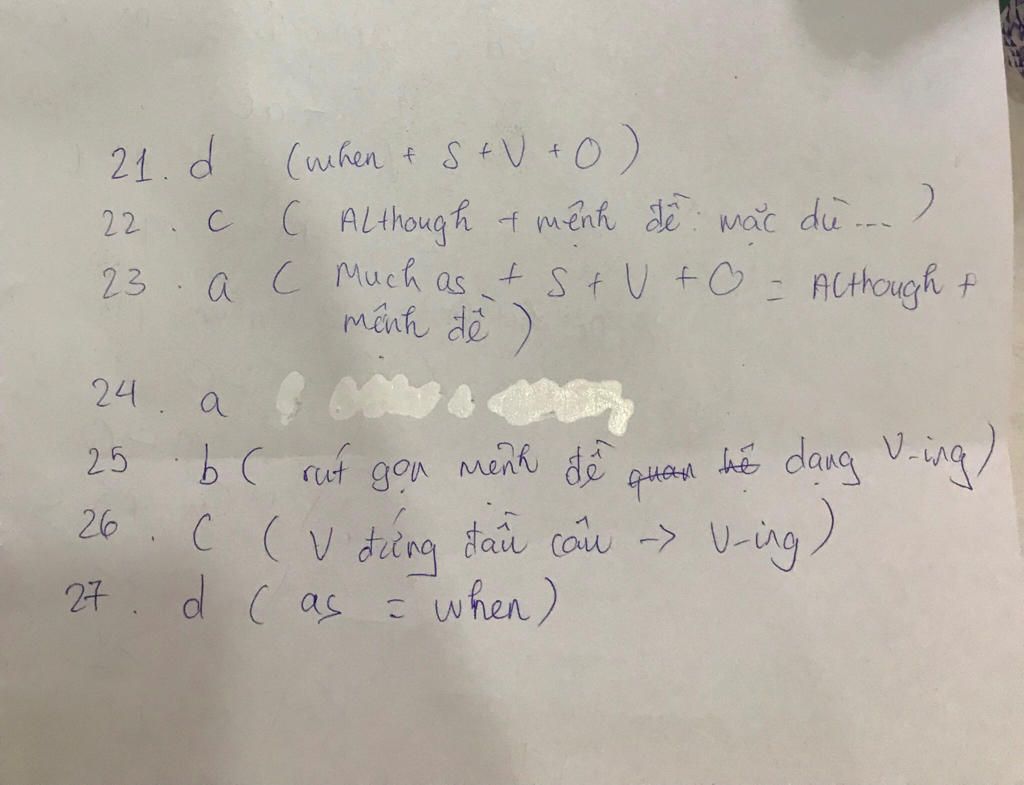 21. d (when + S + V + O)
22. c (Although + mệnh đề: mặc dù ...)
23. a (Much as + S + V + O = Although +
mệnh đề)
24. a
25. b (rút gọn mệnh đề quan hệ dạng V-ing)
26. C (V đứng đầu câu -> V-ing)
27. d (as = when)